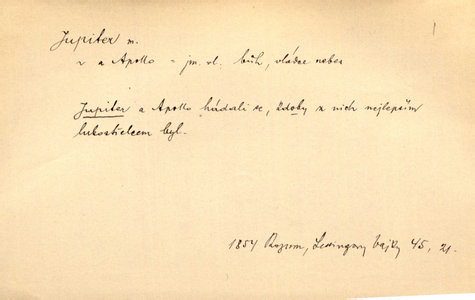 Jupiter m.
1
v a Apollo = jm. vl. bůh, vládce nebes
Jupiter a Apollo hádali se, kdoby z nich nejlepším
lukostřelcem byl.
1854 Rozum, Lessingovy bajky 45, 21.